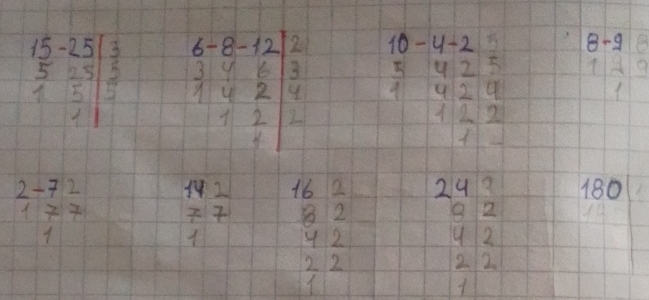 15-25 3 6-8-12 2 10-4-2 5 8-9 8
5 25 5 3 4 6 3 5 4 2 5 1 9
1 5 5 1 4 2 4 1 4 2 4 1
1 1 2 2 1 2 2
1 1
2-7 2 14 2 16 2 24 180
1 7 7 7 7 8 2 8 2
1 1 4 2 4 2
2 2 2 2
1 1